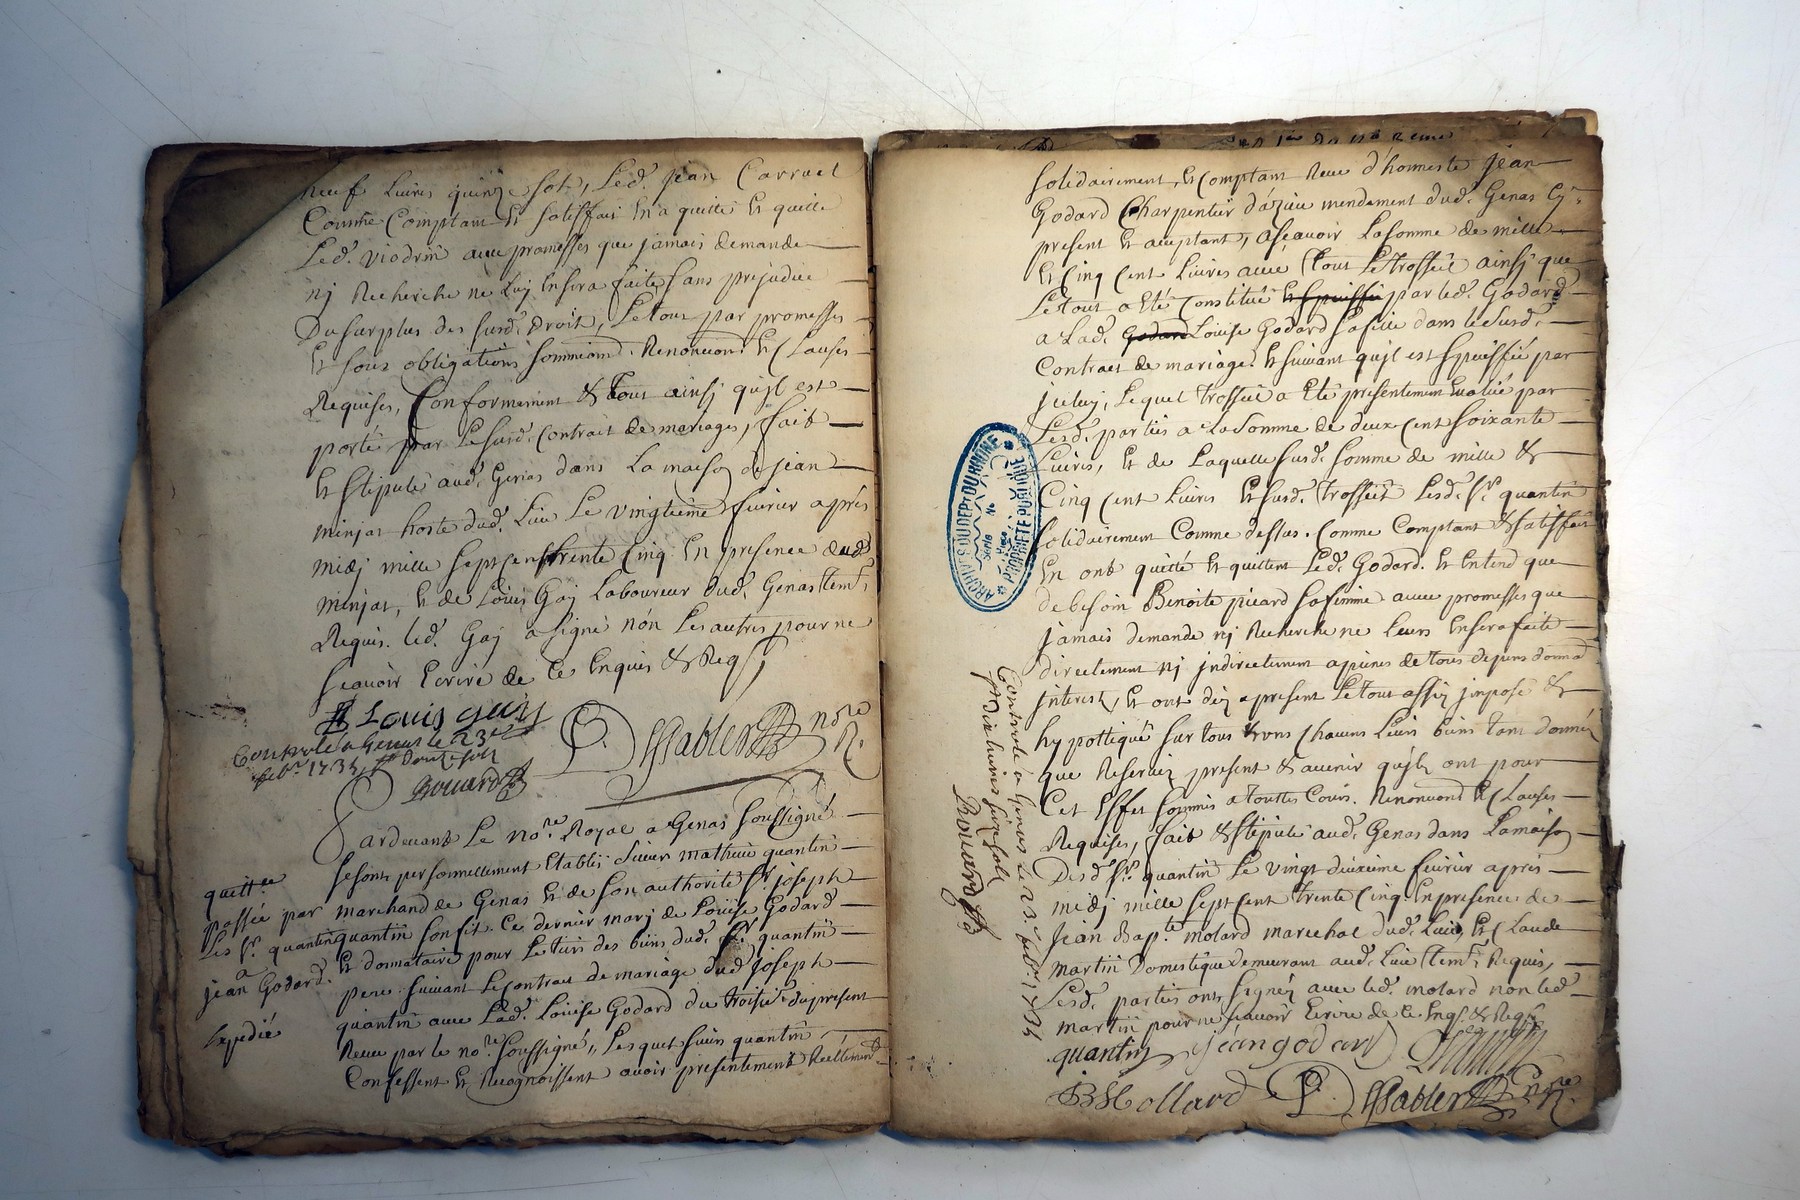 neuf livres quinze sols, Led. jean Carruel
Comme Comptant Et satisfait En a quitté Et quitte
Led. viodrin avec promesses que jamais demande
nj Recherche ne Luy Ensera faite sans prejudice
Du surplus des susd. Droit, Le tout par promesses
Et sous obligations Renoncions Et Clauses
Requises, Conformement & tout ainsj qujl est
porté par Le susd. Contrait de mariages, fait
Et stipulé aud. Genas dans La maison de jean
minjat hoste dud. Lieu Le vingtieme fevrier aprés
midj mille sept cens trente Cinq En presence dud.
minjat, Et de Loüis Gaj Laboureur dud. Genas tem.
Requis. led. Gaj a signé nón Les autres pour ne
scavoir Ecrire de ce Enquis & Reqs
Louis guy
Controlé a Genas le 23e
feb.r 1735 Douze sols
Bouard
P. Sabler no.re R.
Pardevant Le no.re Royal a Genas soussigné
se sont personnellement Etablis sieur mathieu quantin
marchand de Genas Et de son authorité s.r joseph
quantin son fils Ce dernier marj de Loüise Godard
Et donnataire pour Le tiers des biens dud. s.r quantin
pere suivant Le contrait de mariage dud. joseph
quantin avec Lad. Loüise Godard du troisie. du present
Receu par le no.re soussigné, Lesquels sieurs quantin
Confessent Et Recognoissent avoir presentement Réellement
quitt.ce
passée par
Les s.r quantin
a
jean Godard.
Expedié
solidairement, Et Comptant Receu d'honneste jean
Godard Charpentier d'azieu mendement dud. Genas Cy
present Et acceptant, ascavoir La somme de mille
Et Cinq Cent Livres avec tout Le trosseil ainsj que
Le tout a Eté Constitué par led. Godard
a Lad. Godard Loüise Godard sa fille dans le susd.
Contrait de mariage. Et suivant qujl est spiéssifié par
jceluy, Lequel trosseil a Eté presentement Evalué par
Lesd. parties a La somme de deux Cent soixante
Livres, Et de Laquelle susd. somme de mille &
Cinq Cent Livres Et susd. trosseil Lesd. s.r quantin
solidairement Comme dessus. Comme Comptant & satisffait
En ont quitté Et quittent Led. Godard. Et Entend que
de besoin Benoite picard sa femme avec promesses que
jamais demande nj Recherche ne leurs Ensera faite
directement nj jndirectement a peines de tous depens domma
jnterest, Et ont dez a present Le tout assis jmposé &
hypottiqué sur tous Chacuns Leurs biens
que present & avenir qujls ont pour
Cet Effet sommis a touttes Cours. Renoncions Et Clauses
Requises, fait & stipulé aud. Genas dans La maison
Desd. s.r quantin Le vingt deuxieme fevrier aprés
midj mille sept cent trente Cinq En presence de
jean Bap.te molard marechal dud. Lieu, Et Claude
martin Domestique demeurant aud. Lieu tem. Requis,
Lesd. parties ont signéz avec led. molard non led.
martin pour ne scavoir Ecrire de Ce Enqs & Reqs
quantin jean godard
JB Mollard P. Sabler no.re R.
Controlé a Genas Le 23.e feb.r 1735
Bouard
ARCHIVES DU DEPT DU RHONE
PROPRIETE PUBLIQUE
Serie
No